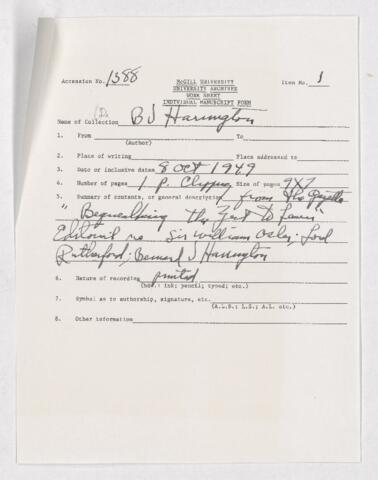 Accession No. 1388
McGILL UNIVERSITY
UNIVERSITY ARCHIVES
WORK SHEET
INDIVIDUAL MANUSCRIPT FORM
Item No. 1
Name of Collection B J Harrington
1. From To
(Author)
2. Place of writing Place addressed to
3. Date or inclusive dates 8 Oct 1949
4. Number of pages 1 p. Clipping Size of pages 9X7
5. Summary of contents, or general description from the Gazette
"Bequeathing the Gent to Learn"
Editorial re Sir William Osler; Lord
Rutherford; Bernard J Harrington
6. Nature of recording printed
(holo: ink; pencil; typed; etc.)
7. Symbol as to authorship, signature, etc.
(A.L.S.; L.S.; A.L. etc.)
8. Other information